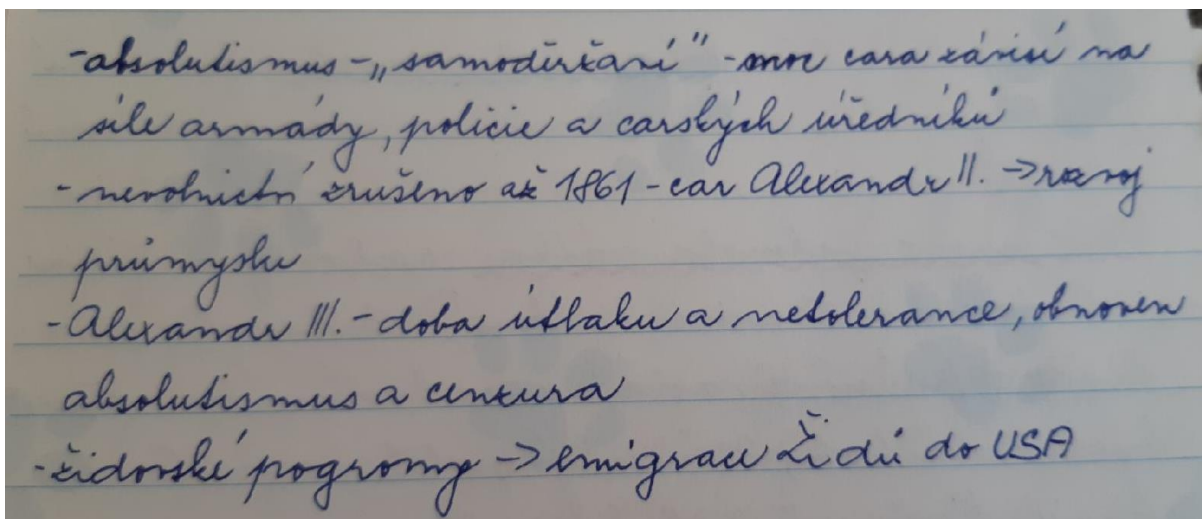 -absolutismus-„samoděržaví" -moc cara závisí na
síle armády, policie a carských úředníků
-nevolnictví zrušeno až 1861-car Alexandr II. →rozvoj
průmyslu
-Alexandr III.-doba útlaku a netolerance, obnoven
absolutismus a cenzura
-židovské pogromy → emigrace Židů do USA